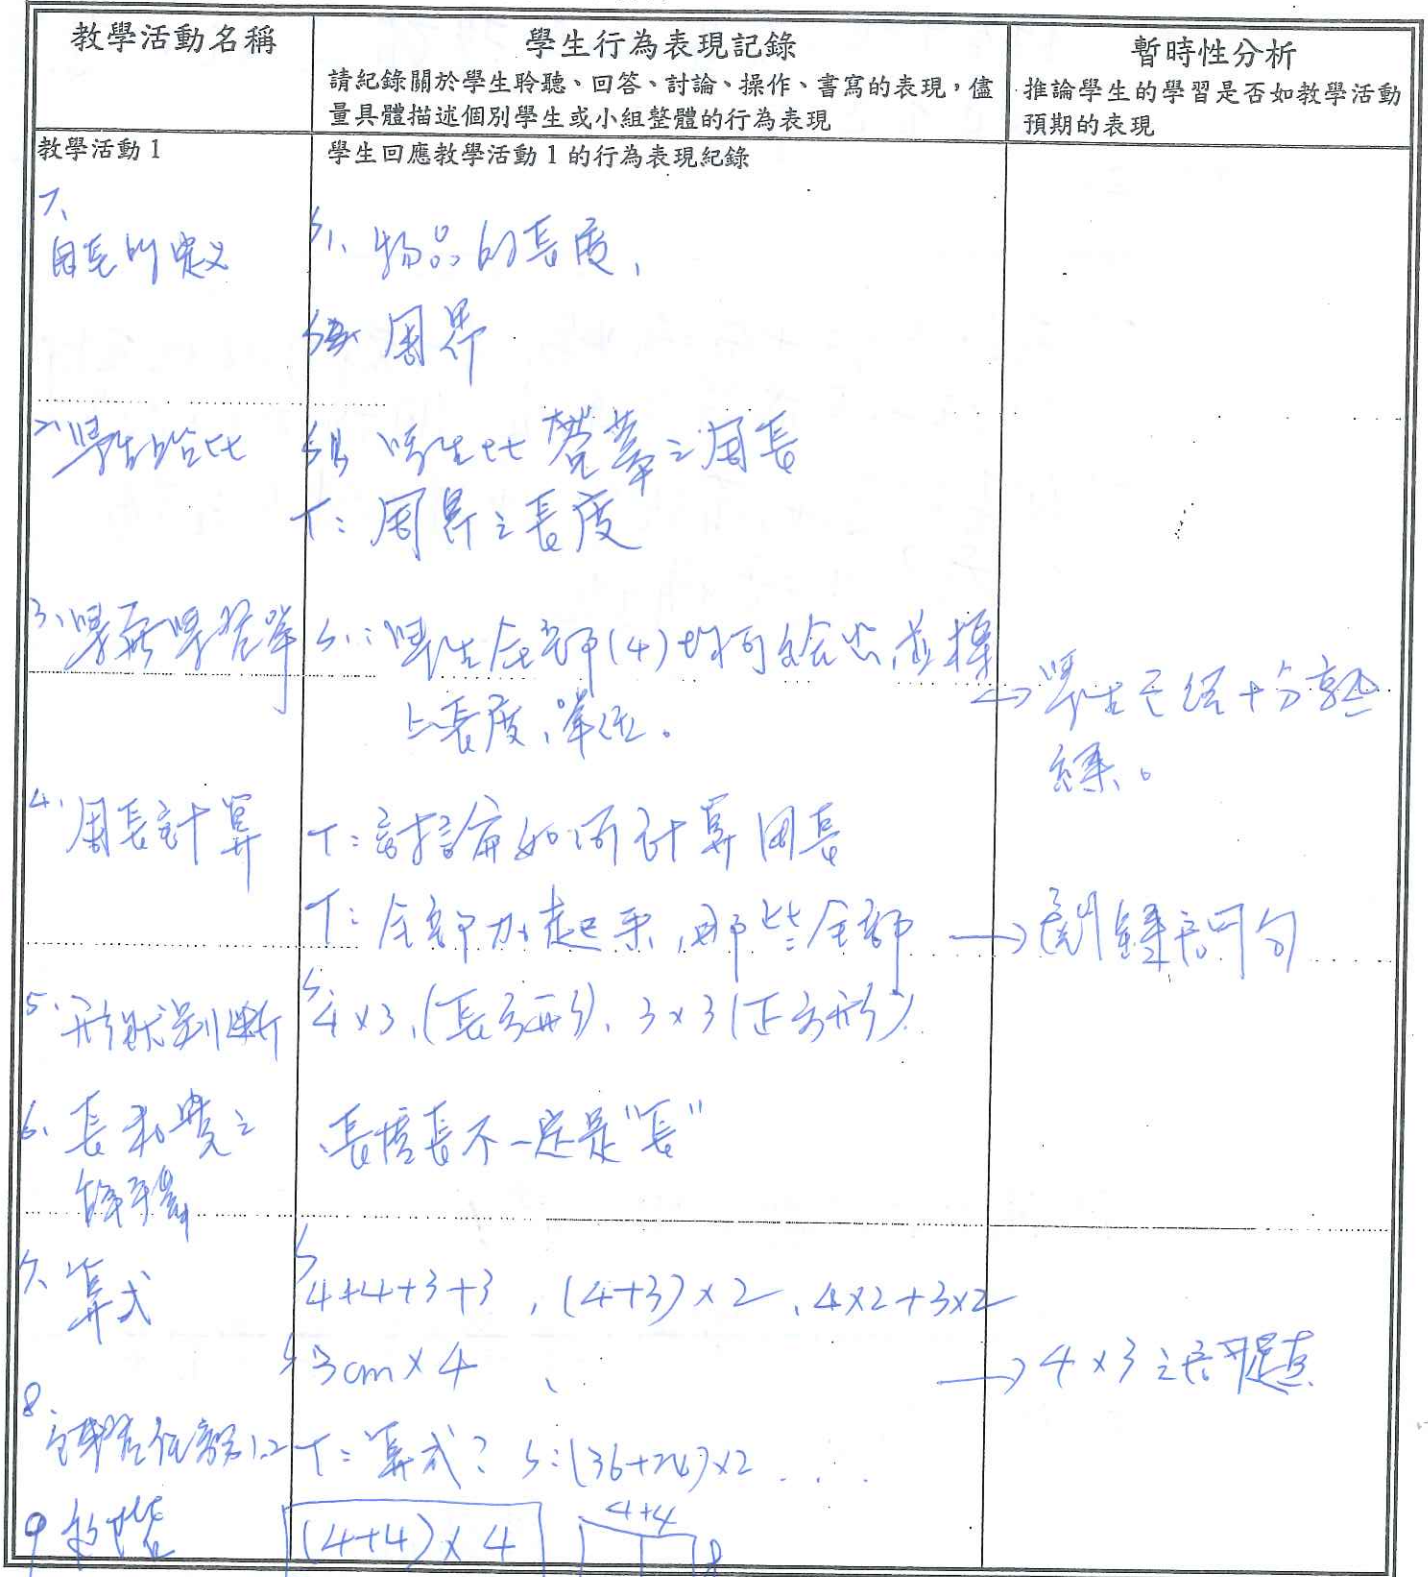 教學活動名稱
學生行為表現記錄
請紀錄關於學生聆聽、回答、討論、操作、書寫的表現，儘
量具體描述個別學生或小組整體的行為表現
暫時性分析
推論學生的學習是否如教學活動
預期的表現
教學活動 1
學生回應教學活動 1 的行為表現紀錄
1、
周長的定義
S1、物品的長度，
周界
2、學生
學生比 之周長
T：周界之長度
3、學 學習單
S1：學生全部(4)均可繪出，並標
上長度，單位。
→學生已經十分熟
練。
4、周長計算
T：討論如何計算周長
T：全部加起來，那些全部
→
5、形狀判斷
S：4×3、(長方形)、3×3(正方形)
6、長和寬之
長度長不一定是"長"
7、算式
S 4+4+3+3，(4+3)×2、4×2+3×2
S 3cm×4、
→4×3之問題
8、
1.2
T：算式？ S：(36+24)×2 ....
9
(4+4)×4
4+4
8